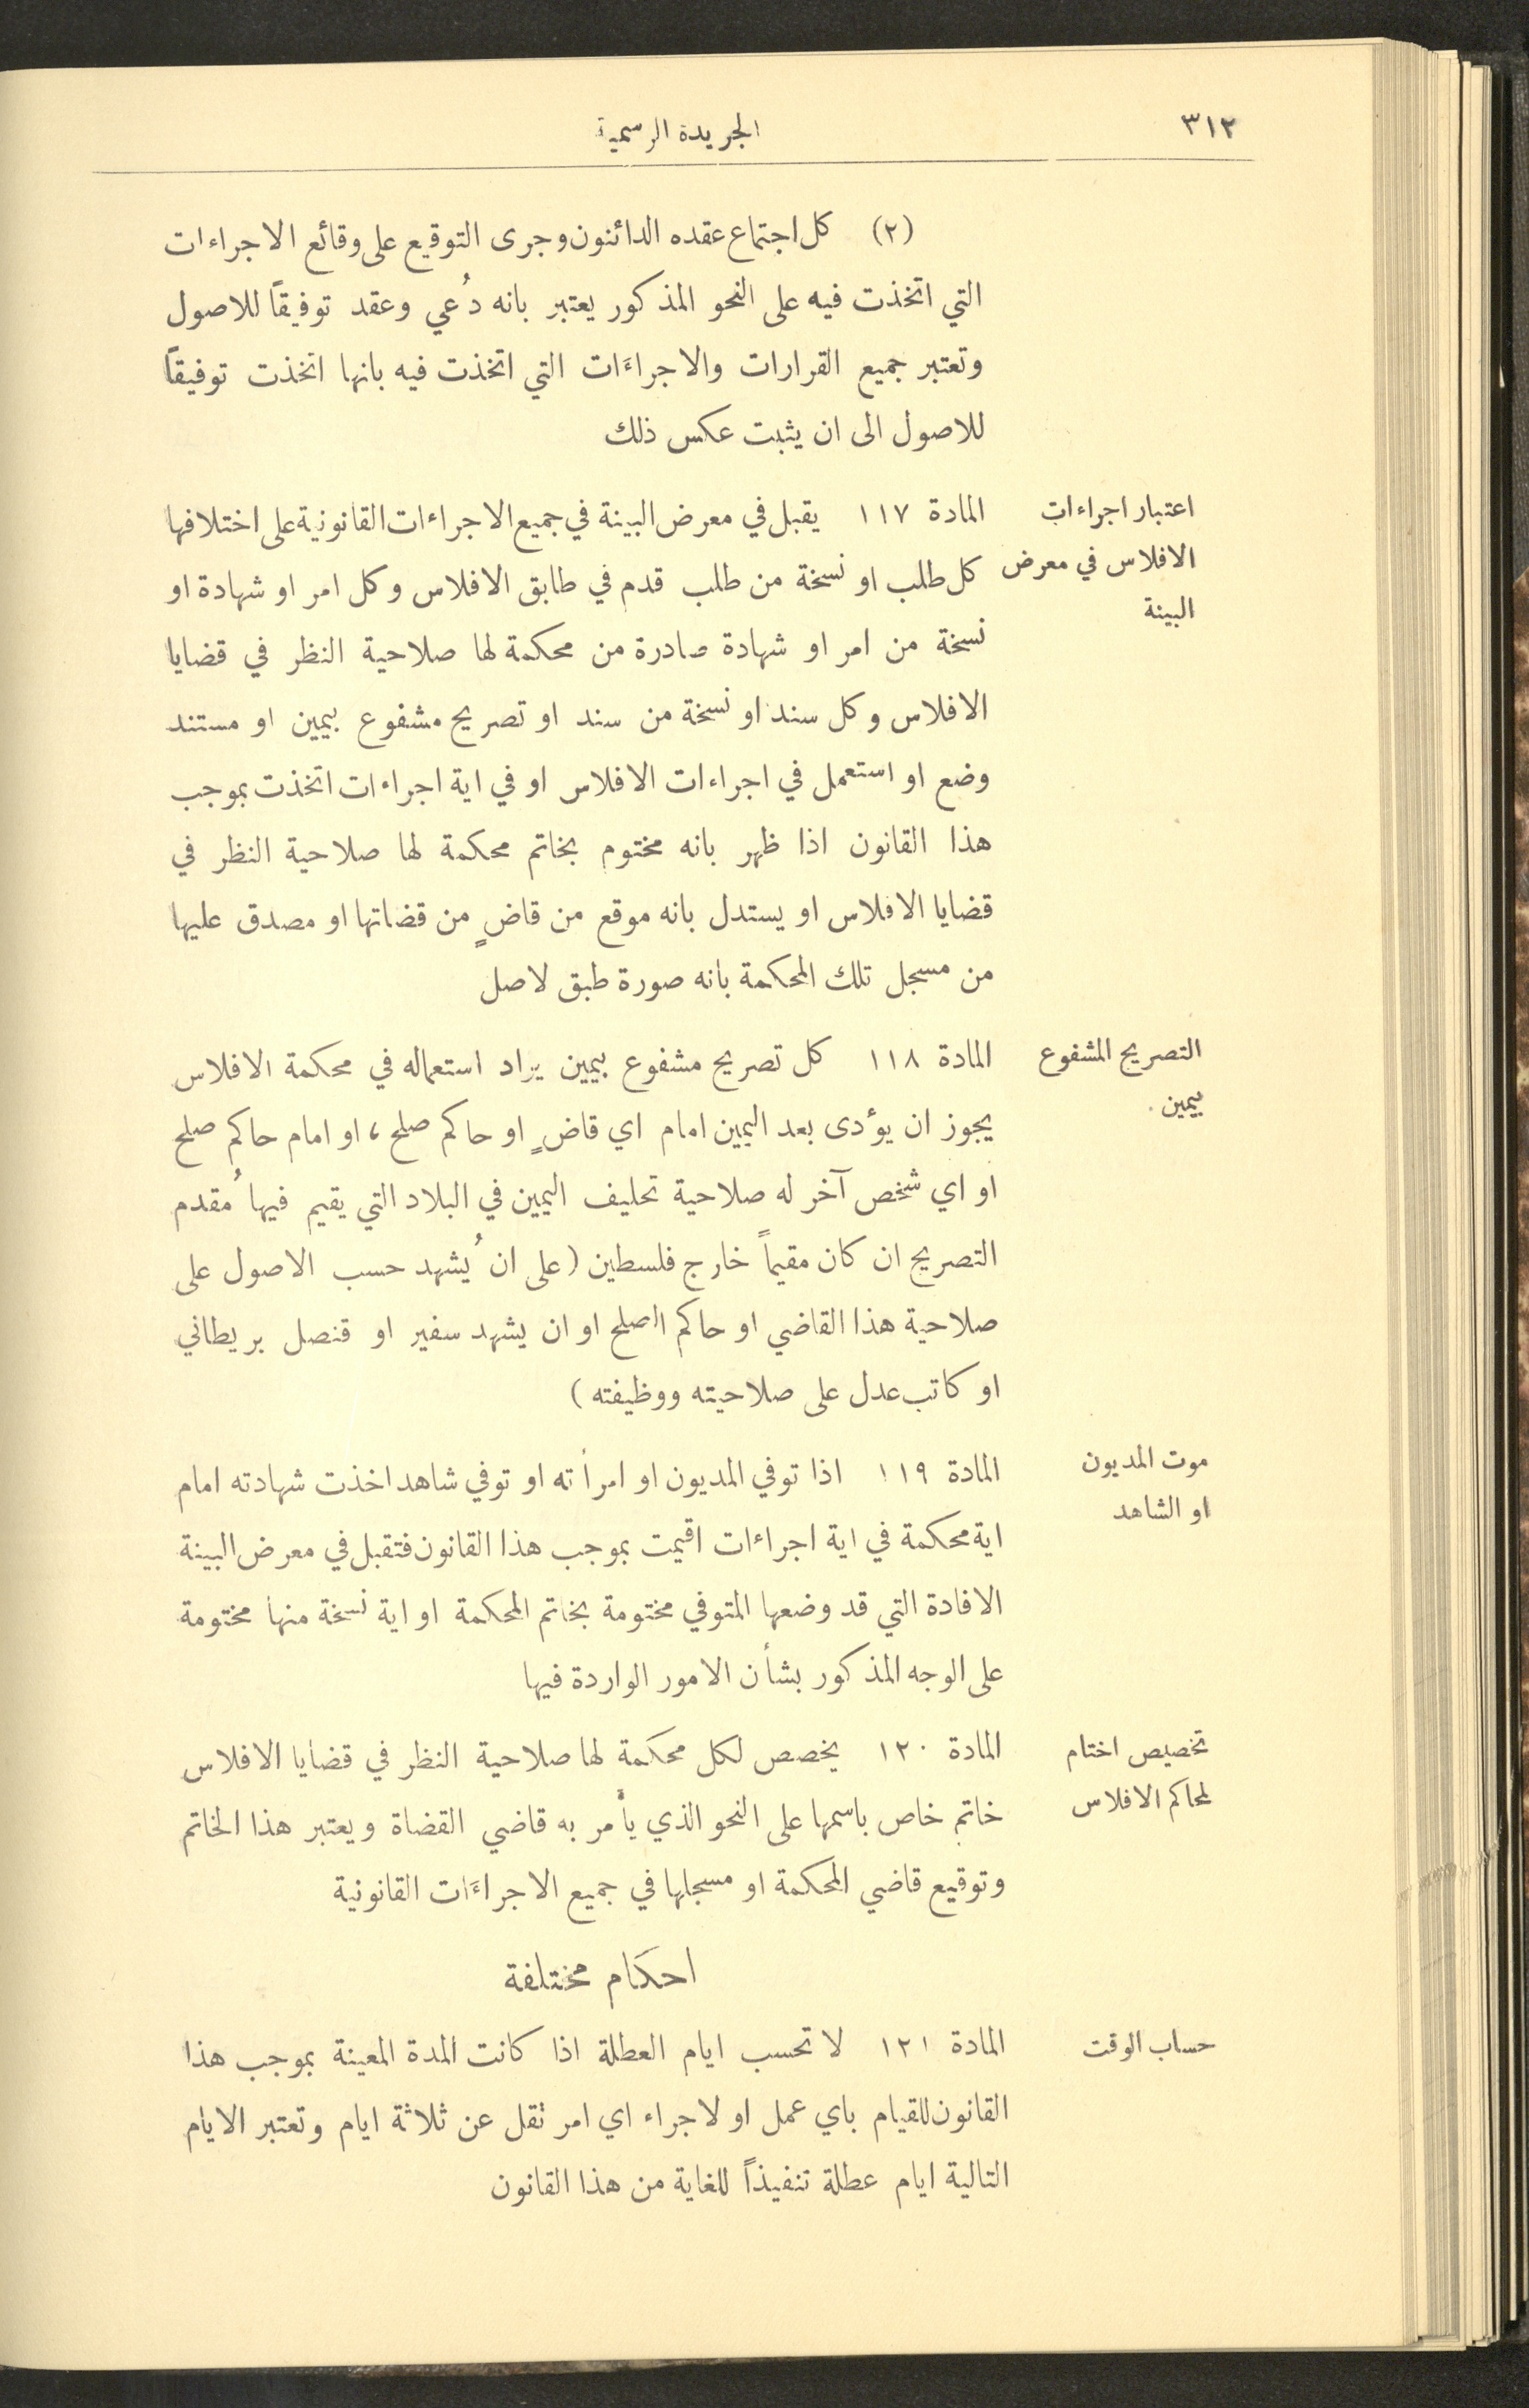 ٣١٢
الجريدة الرسمية
(٢) كل اجتماع عقده الدائنون وجرى التوقيع على وقائع الاجراءات
التي اتخذت فيه على النحو المذكور يعتبر بانه دُعي وعقد توفيقاً للاصول
وتعتبر جميع القرارات والاجراءَات التي اتخذت فيه بانها اتخذت توفيقاً
للاصول الى ان يثبت عكس ذلك
اعتبار اجراءات
الافلاس في معرض
البينة
المادة ١١٧ يقبل في معرض البينة في جميع الاجراءات القانونية على اختلافها
كل طلب او نسخة من طلب قدم في طابق الافلاس وكل امر او شهادة او
نسخة من امر او شهادة صادرة من محكمة لها صلاحية النظر في قضايا
الافلاس وكل سند او نسخة من سند او تصريح مشفوع بيمين او مستند
وضع او استعمل في اجراءات الافلاس او في اية اجراءات اتخذت بموجب
هذا القانون اذا ظهر بانه مختوم بخاتم محكمة لها صلاحية النظر في
قضايا الافلاس او يستدل بانه موقع من قاضٍ من قضاتها او مصدق عليها
من مسجل تلك المحكمة بانه صورة طبق لاصل
التصريح المشفوع
بيمين.
المادة ١١٨ كل تصريح مشفوع بيمين يراد استعماله في محكمة الافلاس
يجوز ان يؤدى بعد اليمين امام اي قاضٍ او حاكم صلح، او امام حاكم صلح
او اي شخص آخر له صلاحية تحليف اليمين في البلاد التي يقيم فيها مُقدم
التصريح ان كان مقيماً خارج فلسطين (على ان يُشهد حسب الاصول على
صلاحية هذا القاضي او حاكم الصلح او ان يشهد سفير او قنصل بريطاني
او كاتب عدل على صلاحيته ووظيفته)
موت المديون
او الشاهد
المادة ١١٩ اذا توفي المديون او امرأته او توفي شاهد اخذت شهادته امام
اية محكمة في اية اجراءات اقيمت بموجب هذا القانون فتقبل في معرض البينة
الافادة التي قد وضعها المتوفي مختومة بخاتم المحكمة او اية نسخة منها مختومة
على الوجه المذكور بشأن الامور الواردة فيها
تخصيص اختام
لمحاكم الافلاس
المادة ١٢٠ يخصص لكل محكمة لها صلاحية النظر في قضايا الافلاس
خاتم خاص باسمها على النحو الذي يأمر به قاضي القضاة ويعتبر هذا الخاتم
وتوقيع قاضي المحكمة او مسجلها في جميع الاجراءَات القانونية
احكام مختلفة
حساب الوقت
المادة ١٢١ لا تحسب ايام العطلة اذا كانت المدة المعينة بموجب هذا
القانون للقيام باي عمل او لاجراء اي امر تقل عن ثلاثة ايام وتعتبر الايام
التالية ايام عطلة تنفيذاً للغاية من هذا القانون